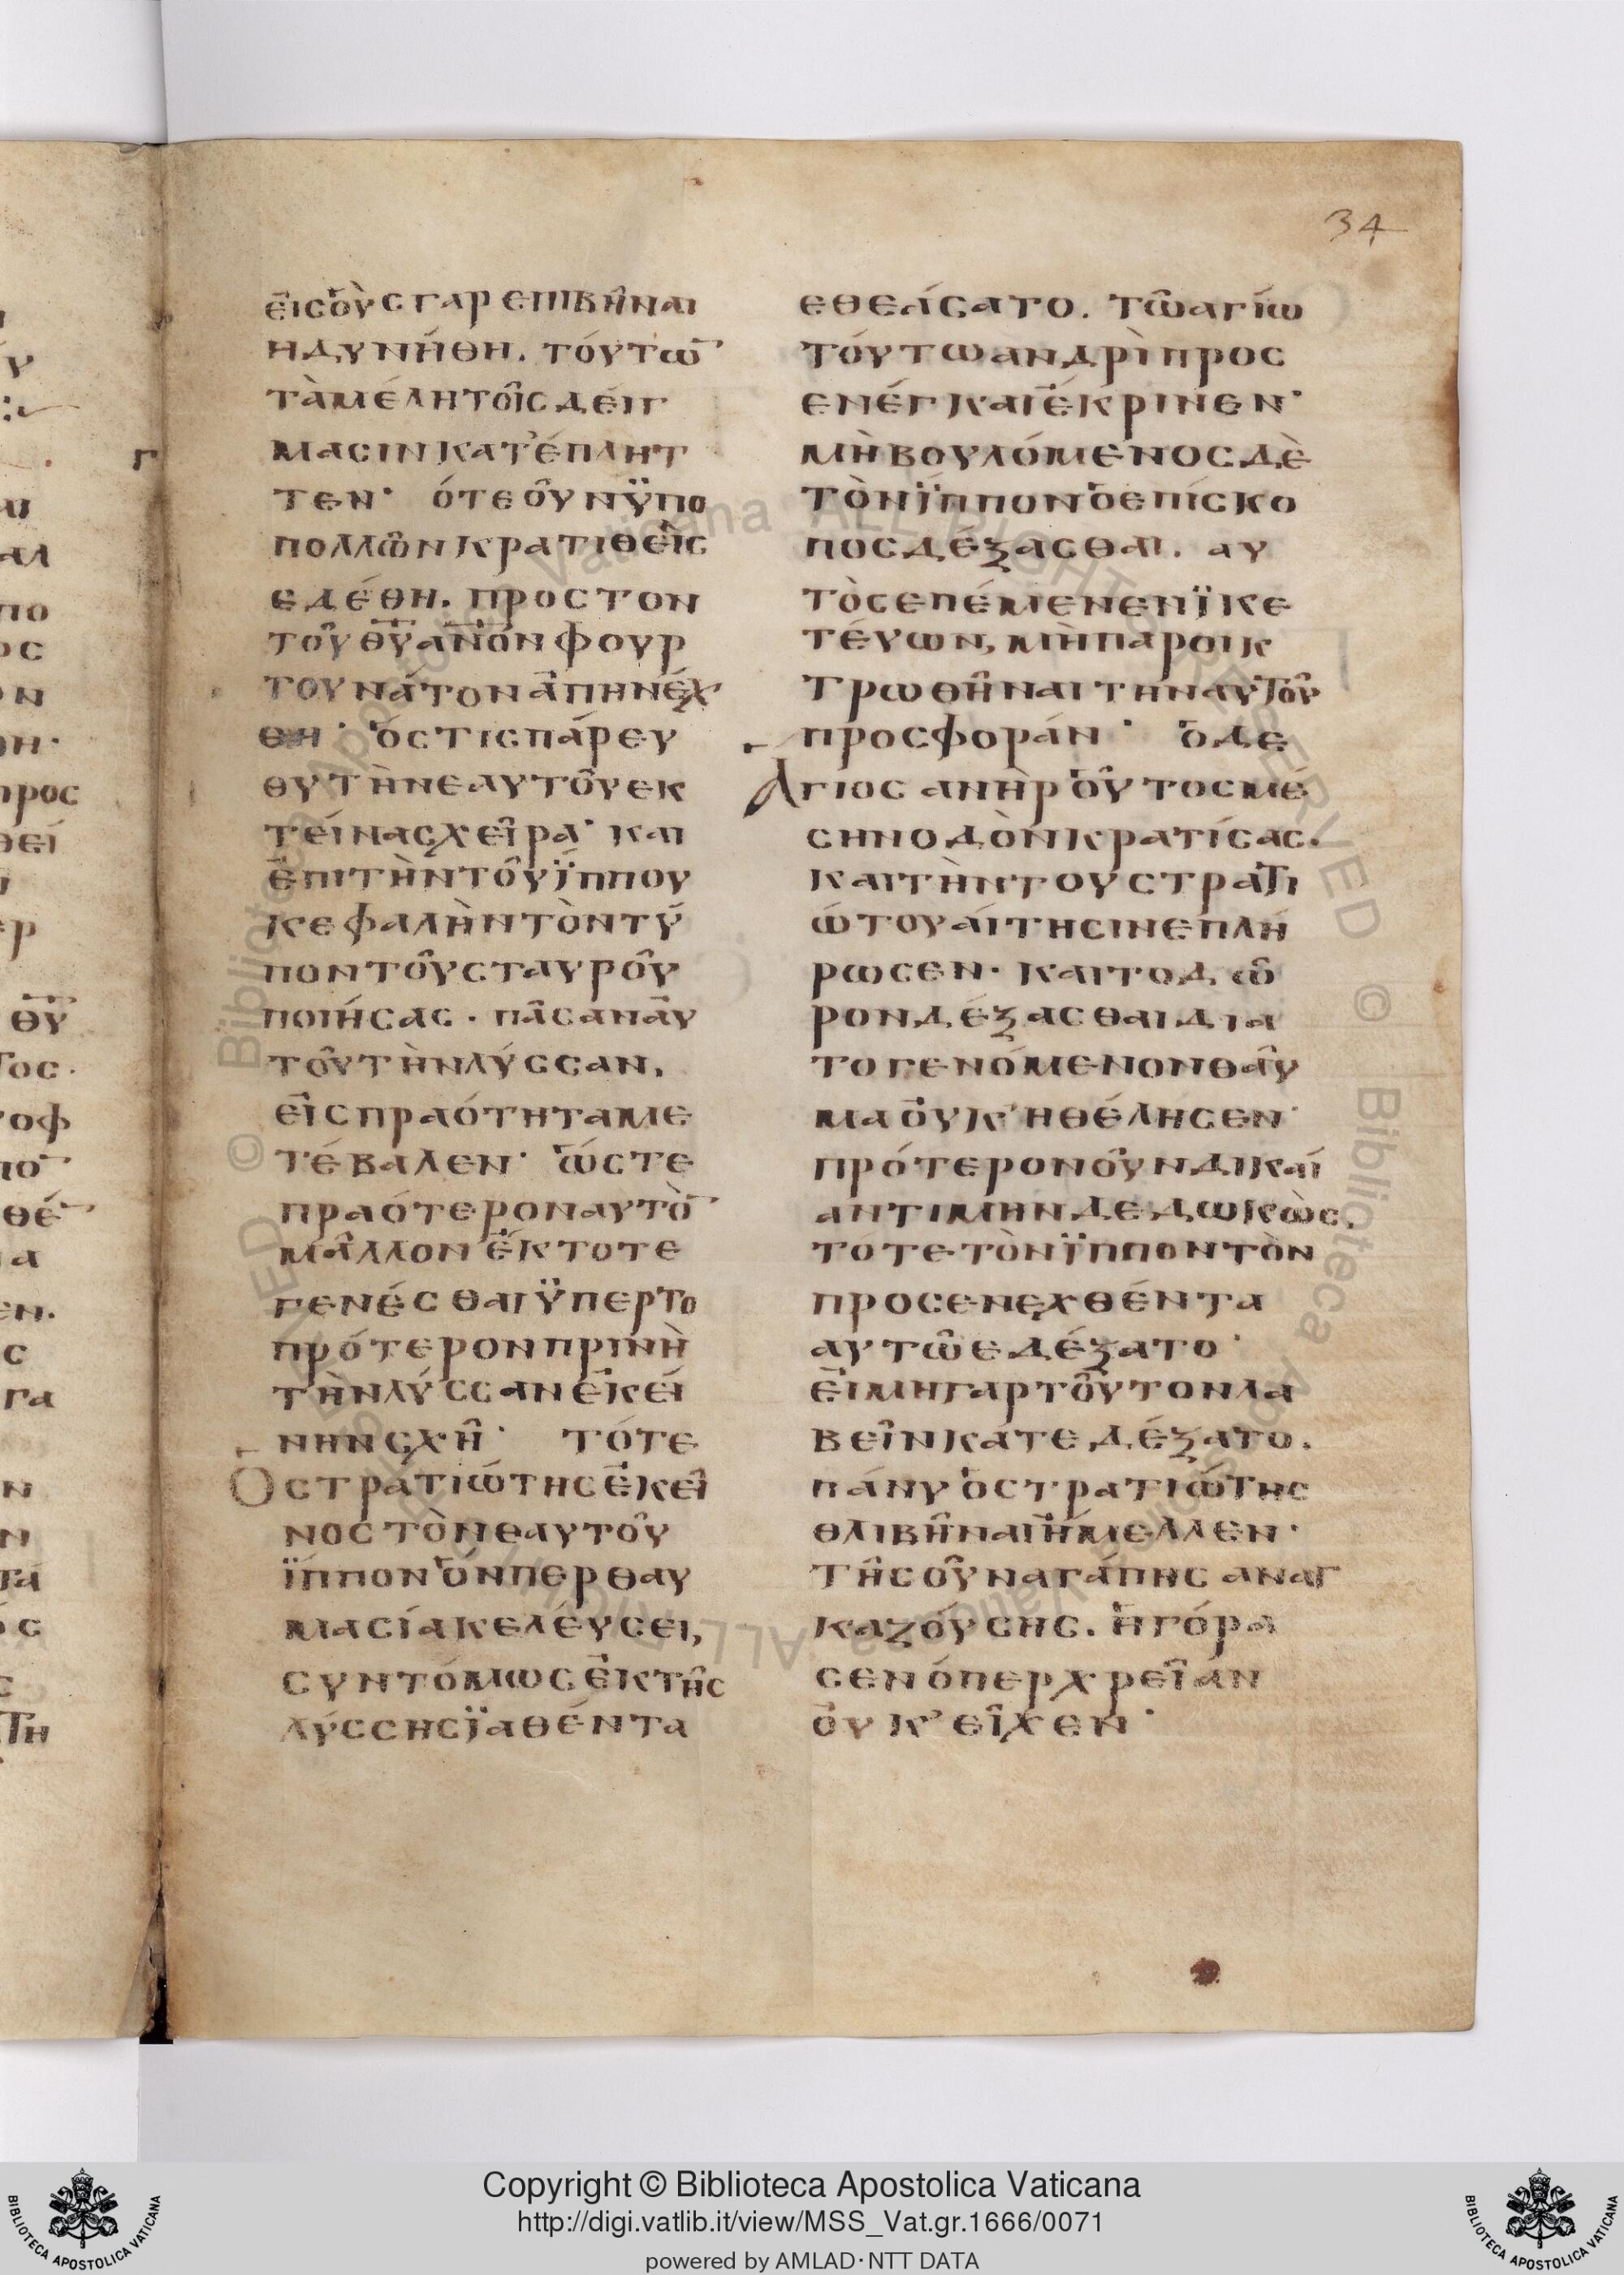 34
ἐισοὺς γαρ ἐπιβῆναι
ηδυνήθη. τόυτω̅
τὰμέλητοῖς δέιγ
μασιν κατ' έπλητ
τεν· ότε οῦν ϋπο
πολλῶν κρατιθεὶς
εδέθη. προς τον
τοῦ θ̅υ̅ αν̅όν φουρ
τουνάτον ἀπηνέχ
θη· ὅς τις πάρευ
θυ τὴν εαυτοῦ εκ
τείνας χεῖρα· και
ἐπι τὴν τοῦ ΐππου
κεφαλὴν τὸν τύ
πον τοῦ σταυροῦ
ποιήσας. πᾶσαν ἀυ
τοῦ τὴν λύσσαν,
εἰς πραότητα με
τέβαλεν· ὥστε
πραότερον αυτὸ̅
μᾶλλον ἔκτοτε
γενέσθαι ϋπερ το
πρότερον πρινὴ
τὴν λύσσαν ἐκεί
νην σχῆ· τότε
Ὁ στρατιώτης ἐκεῖ
νος τὸν εαυτοῦ
ΐππον ὅνπερ θαυ
μασία κελέυσει,
συντόμως ἐκ τῆς
λύσσης ϊαθέντα
εθεάσατο. τῶ αγίω
τόυτω ανδρὶ προς
ενέγκαι ἔκρινεν·
μὴ βουλόμενος δὲ
τὸν ΐππον ὁ επίσκο
πος δέξασθαι. αυ
τὸς επέμενεν ϊκε
τέυων, μὴ παροικ
τρωθῆναι τὴν αυτοῦ
προσφοράν· ὁ δε
Αγιος ανὴρ οὗτος μέ
σην οδὸν κρατίσας.
και τὴν του στρατι
ώτου αίτησιν επλή
ρωσεν. και το δῶ
ρον δέξασθαι δια
το γενόμενον θαῦ
μα ὀυκ' ηθέλησεν·
πρότερον οῦν δικαί
αν τιμην δεδωκὼς.
τότε τὸν ΐππον τὸν
προσενεχθέντα
αυτῶ εδέξατο·
ἐι μη γαρ τοῦτον λα
βεῖν κατεδέξατο.
πάνυ ὁ στρατιώτης
θλιβῆναι ήμελλεν·
τῆς οῦν αγάπης αναγ
καζόυσης. ἠγόρα
σεν όπερ χρείαν
ὀυκ' εῖχεν·
Copyright © Biblioteca Apostolica Vaticana
http://digi.vatlib.it/view/MSS_Vat.gr.1666/0071
powered by AMLAD·NTT DATA